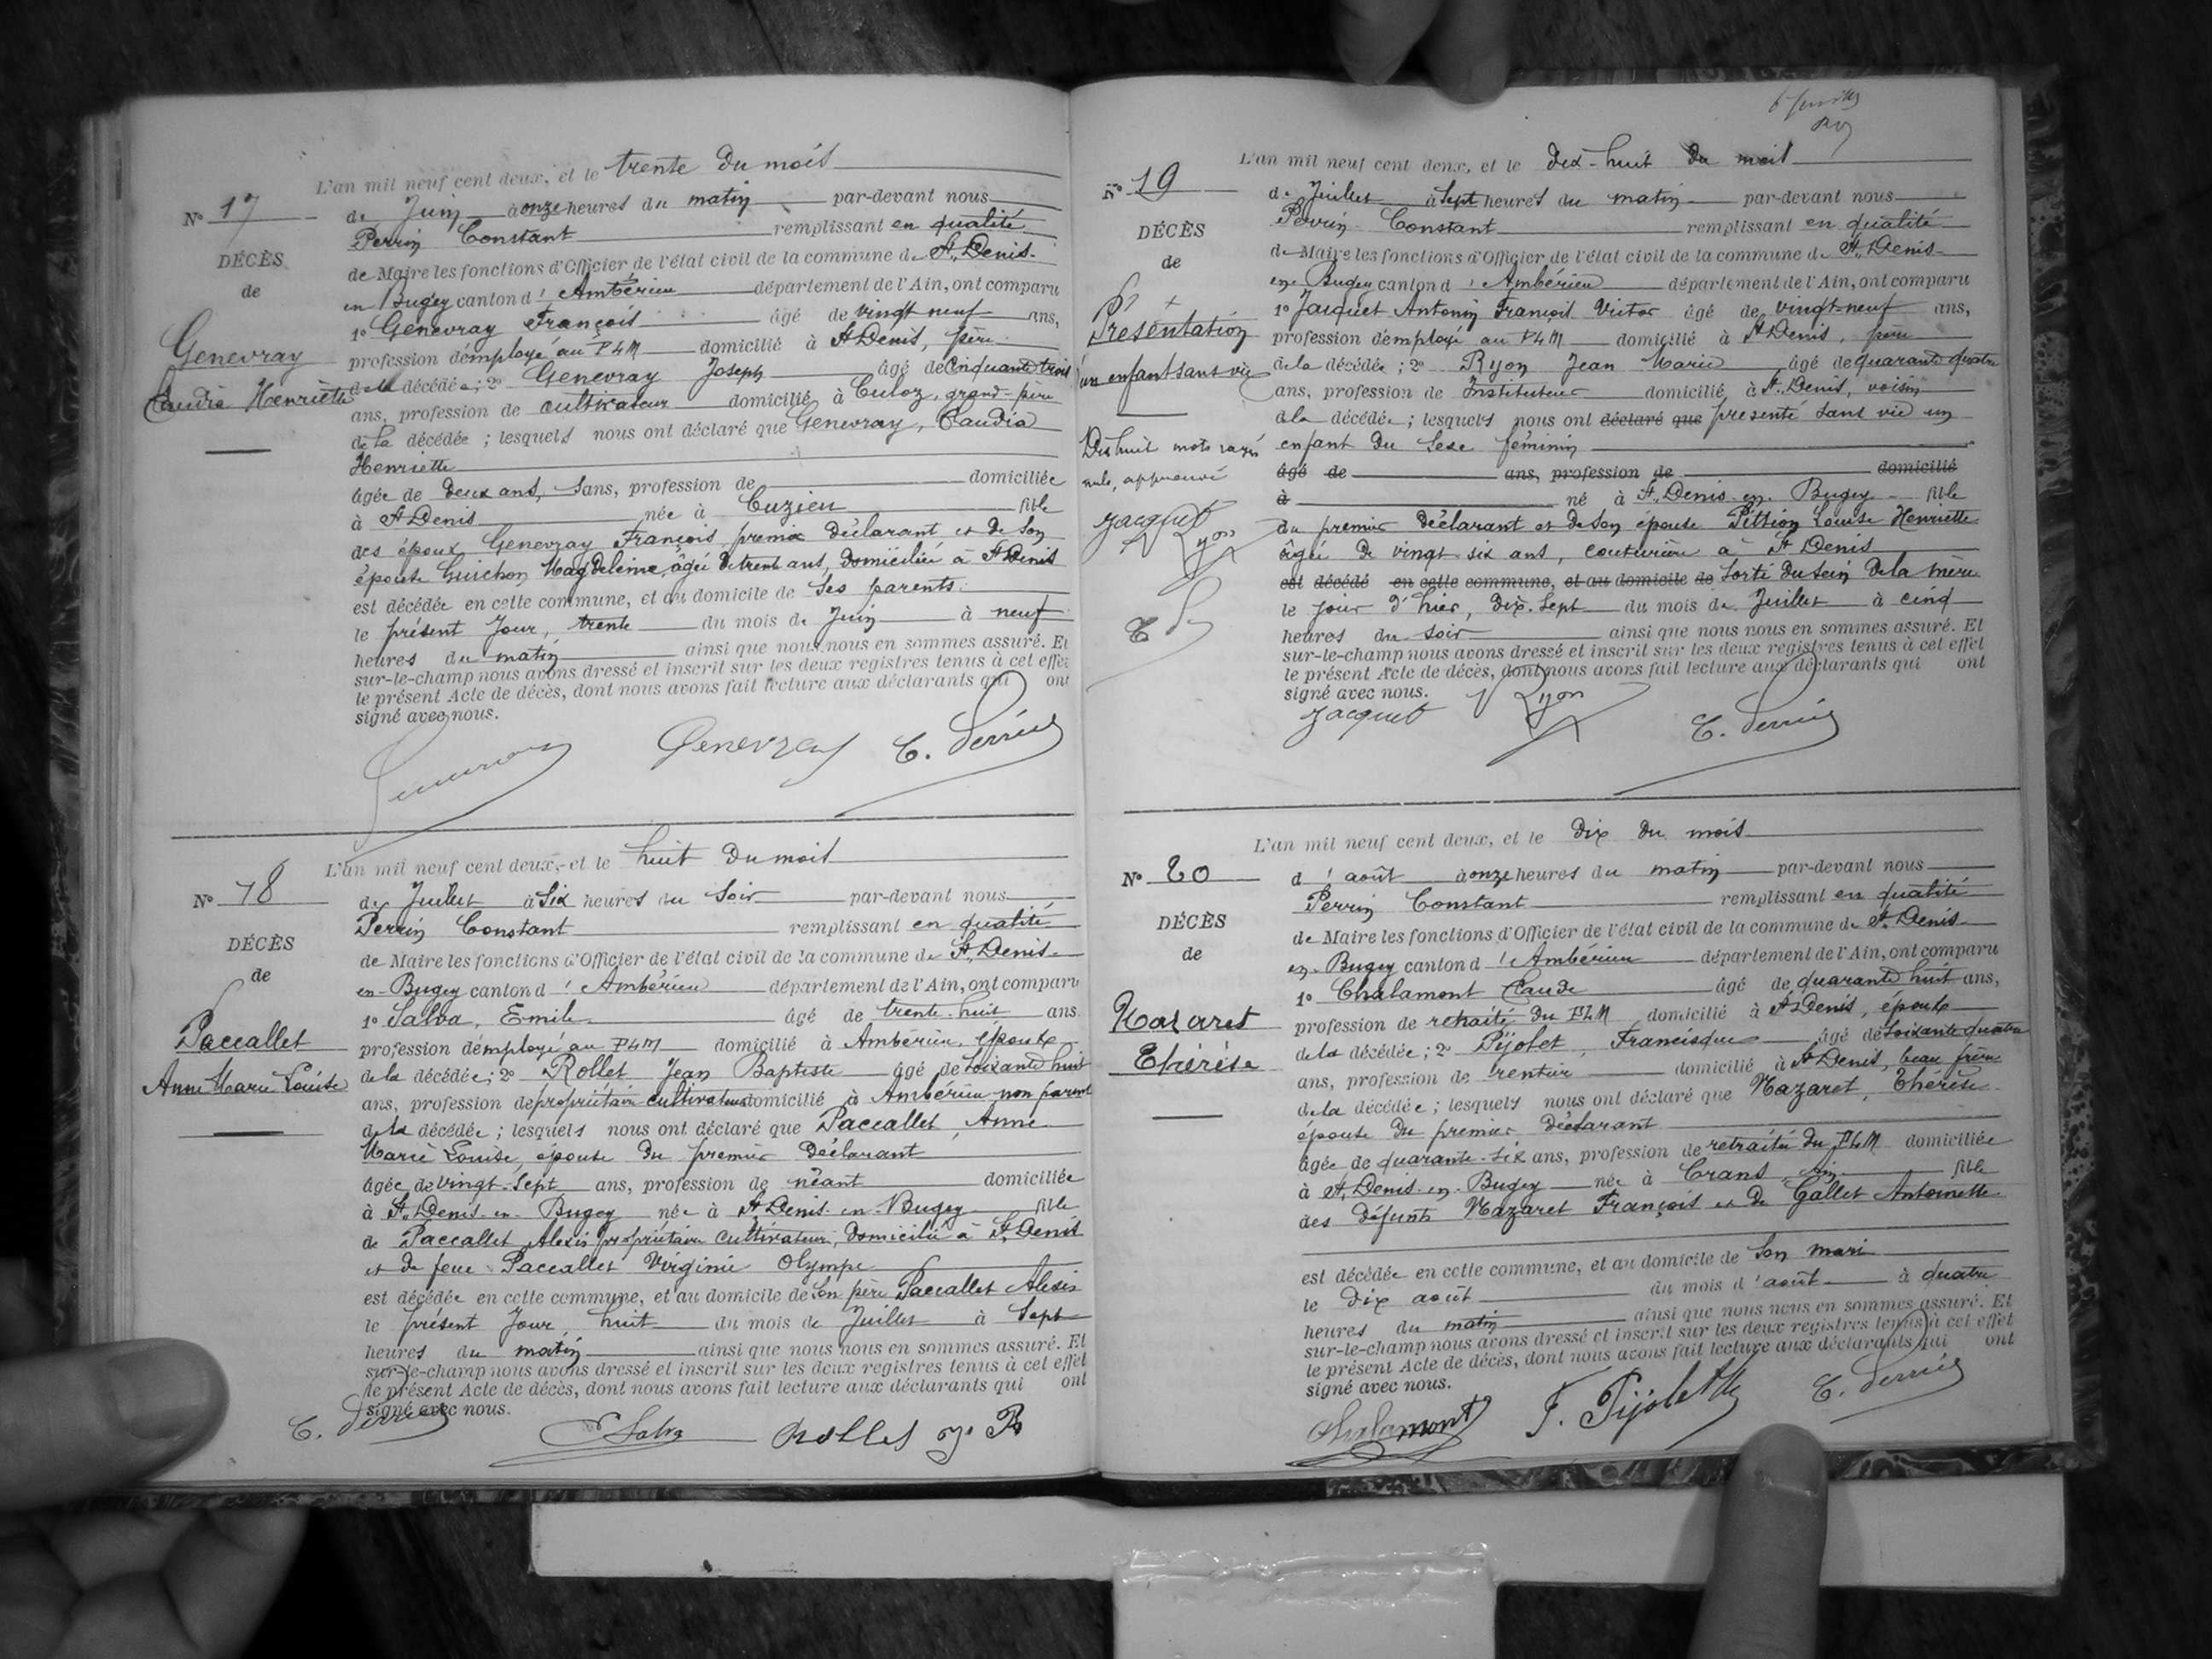 L'an mil neuf cent deux, et le trente du mois
N° 17
de Juin à onze heures du matin par-devant nous
Perrin Constant remplissant en qualité
DÉCÈS
de Maire les fonctions d'Officier de l'état civil de la commune de St Denis-
de
en Bugey canton d'Ambérieu département de l'Ain, ont comparu
1° Genevray François âgé de vingt neuf ans,
Genevray
profession d'employé au PLM domicilié à St Denis, père
Claudia Henriette
de la décédée; 2° Genevray Joseph âgé de cinquante trois
ans, profession de cultivateur domicilié à Culoz, grand-père
de la décédée; lesquels nous ont déclaré que Genevray, Claudia
Henriette
âgée de deux ans, sans, profession de domiciliée
à St Denis née à Cuzieu fille
des époux Genevray François premier déclarant et de son
épouse Guichon Magdeleine, âgée de trente ans, domiciliée à St Denis
est décédée en cette commune, et au domicile de ses parents
le présent jour, trente du mois de Juin à neuf
heures du matin ainsi que nous nous en sommes assuré. Et
sur-le-champ nous avons dressé et inscrit sur les deux registres tenus à cet effet
le présent Acte de décès, dont nous avons fait lecture aux déclarants qui ont
signé avec nous.
Genevray C. Perrin
L'an mil neuf cent deux, et le huit du mois
N° 18
de Juillet à six heures du soir par-devant nous
Perrin Constant remplissant en qualité
DÉCÈS
de Maire les fonctions d'Officier de l'état civil de la commune de St Denis-
de
en-Bugey canton d'Ambérieu département de l'Ain, ont comparu
1° Salva, Emile âgé de trente-huit ans
Paccallet
profession d'employé au PLM domicilié à Ambérieu, époux
Anne Marie Louise
de la décédée; 2° Rollet Jean Baptiste âgé de soixante huit
ans, profession de propriétaire cultivateur domicilié à Ambérieu non parent
de la décédée; lesquels nous ont déclaré que Paccallet, Anne
Marie Louise, épouse du premier déclarant
âgée de vingt-sept ans, profession de néant domiciliée
à St Denis-en-Bugey née à St Denis-en-Bugey fille
de Paccallet Alexis propriétaire cultivateur, domicilié à St Denis
et de feue Paccallet Virginie Olympe
est décédée en cette commune, et au domicile de son père Paccallet Alexis
le présent jour huit du mois de Juillet à sept
heures du matin ainsi que nous nous en sommes assuré. Et
sur-le-champ nous avons dressé et inscrit sur les deux registres tenus à cet effet
le présent Acte de décès, dont nous avons fait lecture aux déclarants qui ont
signé avec nous.
C. Perrin E Salva Rollet J. B
L'an mil neuf cent deux, et le dix-huit du mois
N° 19
de Juillet à sept heures du matin par-devant nous
Perrin Constant remplissant en qualité
DÉCÈS
de Maire les fonctions d'Officier de l'état civil de la commune de St Denis-
de
en-Bugey canton d'Ambérieu département de l'Ain, ont comparu
1° Jacquet Antonin François Victor âgé de vingt-neuf ans,
Présentation
profession d'employé au PLM domicilié à St Denis, père
d'un enfant sans vie
de la décédée; 2° Ryon Jean Marie âgé de quarante quatre
ans, profession de Instituteur domicilié à St Denis, voisin
de la décédée; lesquels nous ont déclaré que présenté sans vie un
Dix huit mots rayés
enfant du sexe féminin
nuls, approuvé
âgé de ans, profession de domicilié
à né à St Denis-en-Bugey fille
Jacquet
du premier déclarant et de son épouse Pittion Louise Henriette
Ryon
âgée de vingt-six ans, couturière à St Denis
est décédé en cette commune, et au domicile de sorti du sein de la mère
le jour d'hier, dix-sept du mois de Juillet à cinq
C P
heures du soir ainsi que nous nous en sommes assuré. Et
sur-le-champ nous avons dressé et inscrit sur les deux registres tenus à cet effet
le présent Acte de décès, dont nous avons fait lecture aux déclarants qui ont
signé avec nous.
Jacquet Ryon C. Perrin
L'an mil neuf cent deux, et le dix du mois
N° 20
d'août à onze heures du matin par-devant nous
Perrin Constant remplissant en qualité
DÉCÈS
de Maire les fonctions d'Officier de l'état civil de la commune de St Denis-
de
en-Bugey canton d'Ambérieu département de l'Ain, ont comparu
1° Chalamont Claude âgé de quarante huit ans,
Nazaret
profession de retraité du PLM domicilié à St Denis, époux
Thérèse
de la décédée; 2° Pijolet, Francisque âgé de soixante quatre
ans, profession de rentier domicilié à St Denis, beau frère
de la décédée; lesquels nous ont déclaré que Nazaret, Thérèse
épouse du premier déclarant
âgée de quarante-six ans, profession de retraitée du PLM domiciliée
à St Denis-en-Bugey née à Crans, Ain fille
des défunts Nazaret François et de Gallet Antoinette
est décédée en cette commune, et au domicile de son mari
le dix août du mois d'août à quatre
heures du matin ainsi que nous nous en sommes assuré. Et
sur-le-champ nous avons dressé et inscrit sur les deux registres tenus à cet effet
le présent Acte de décès, dont nous avons fait lecture aux déclarants qui ont
signé avec nous.
Chalamont F. Pijolet C. Perrin